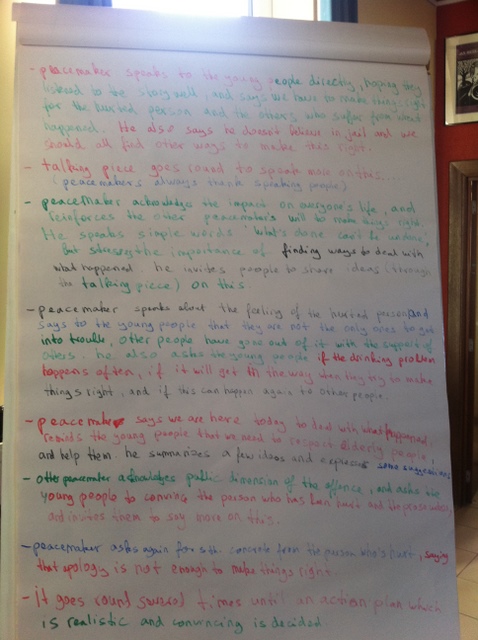 - peacemaker speaks to the young people directly, hoping they
listened to the story well, and says we have to make things right
for the hurted person and the others who suffer from what
happened. He also says he doesn't believe in jail and we
should all find other ways to make this right.
- talking piece goes round to speak more on this....
(peacemakers always thank speaking people)
- peacemaker acknowledge the impact on everyone's life, and
reinforces the other peacemaker's will to make things right.
He speaks simple words 'What's done can't be undone,
but stresses the importance of finding ways to deal with
what happened. he invites people to share ideas (through
the talking piece) on this.
- peacemaker speaks about the feeling of the hurted person, and
says to the young people that they are not the only ones to get
into trouble, other people have gone out of it with the support of
others. he also asks the young people if the drinking problem
happens often, if it will get in the way when they try to make
things right, and if this can happen again to other people.
- peacemaker says we are here today to deal with what happened,
reminds the young people that we need to respect elderly people,
and help them. he summarizes a few ideas and expresses some suggestions
- other peacemaker acknowledges public dimension of the offence, and asks the
young people to convince the person who has been hurt and the prosecutor,
and invites them to say more on this.
- peacemaker asks again for sth. concrete from the person who's hurt, saying
that apology is not enough to make things right.
- it goes round several times until an action plan which
is realistic and convincing is decided